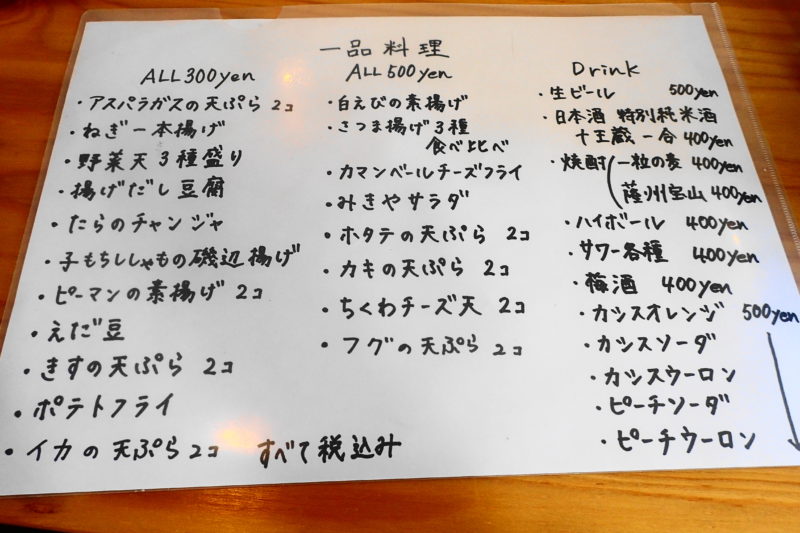 一品料理
ALL 300yen
・アスパラガスの天ぷら 2コ
・ねぎ一本揚げ
・野菜天3種盛り
・揚げだし豆腐
・たらのチャンジャ
・子もちししゃもの磯辺揚げ
・ピーマンの素揚げ 2コ
・えだ豆
・きすの天ぷら 2コ
・ポテトフライ
・イカの天ぷら 2コ
すべて税込み
ALL 500yen
・白えびの素揚げ
・さつま揚げ3種
食べ比べ
・カマンベールチーズフライ
・みきやサラダ
・ホタテの天ぷら 2コ
・カキの天ぷら 2コ
・ちくわチーズ天 2コ
・フグの天ぷら 2コ
Drink
・生ビール 500yen
・日本酒 特別純米酒
十王蔵 一合 400yen
・焼酎 一粒の麦 400yen
薩州宝山 400yen
・ハイボール 400yen
・サワー各種 400yen
・梅酒 400yen
・カシスオレンジ 500yen
・カシスソーダ
・カシスウーロン
・ピーチソーダ
・ピーチウーロン